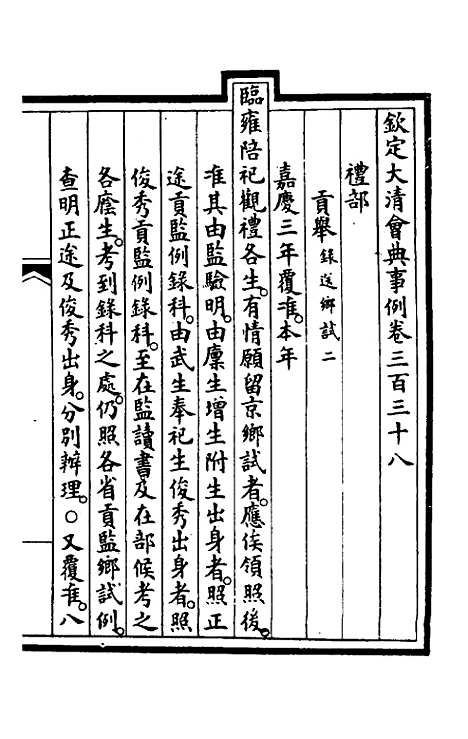 欽定大清會典事例卷三百三十八
禮部
貢舉錄送鄉試二
嘉慶三年覆准。本年
臨雍陪祀觀禮各生。有情願留京鄉試者。應俟領照後。
准其由監驗明。由廩生增生附生出身者。照正
途貢監例錄科。由武生奉祀生俊秀出身者。照
俊秀貢監例錄科。至在監讀書及在部候考之
各廕生。考到錄科之處。仍照各省貢監鄉試例。
查明正途及俊秀出身。分別辦理。○又覆准。八